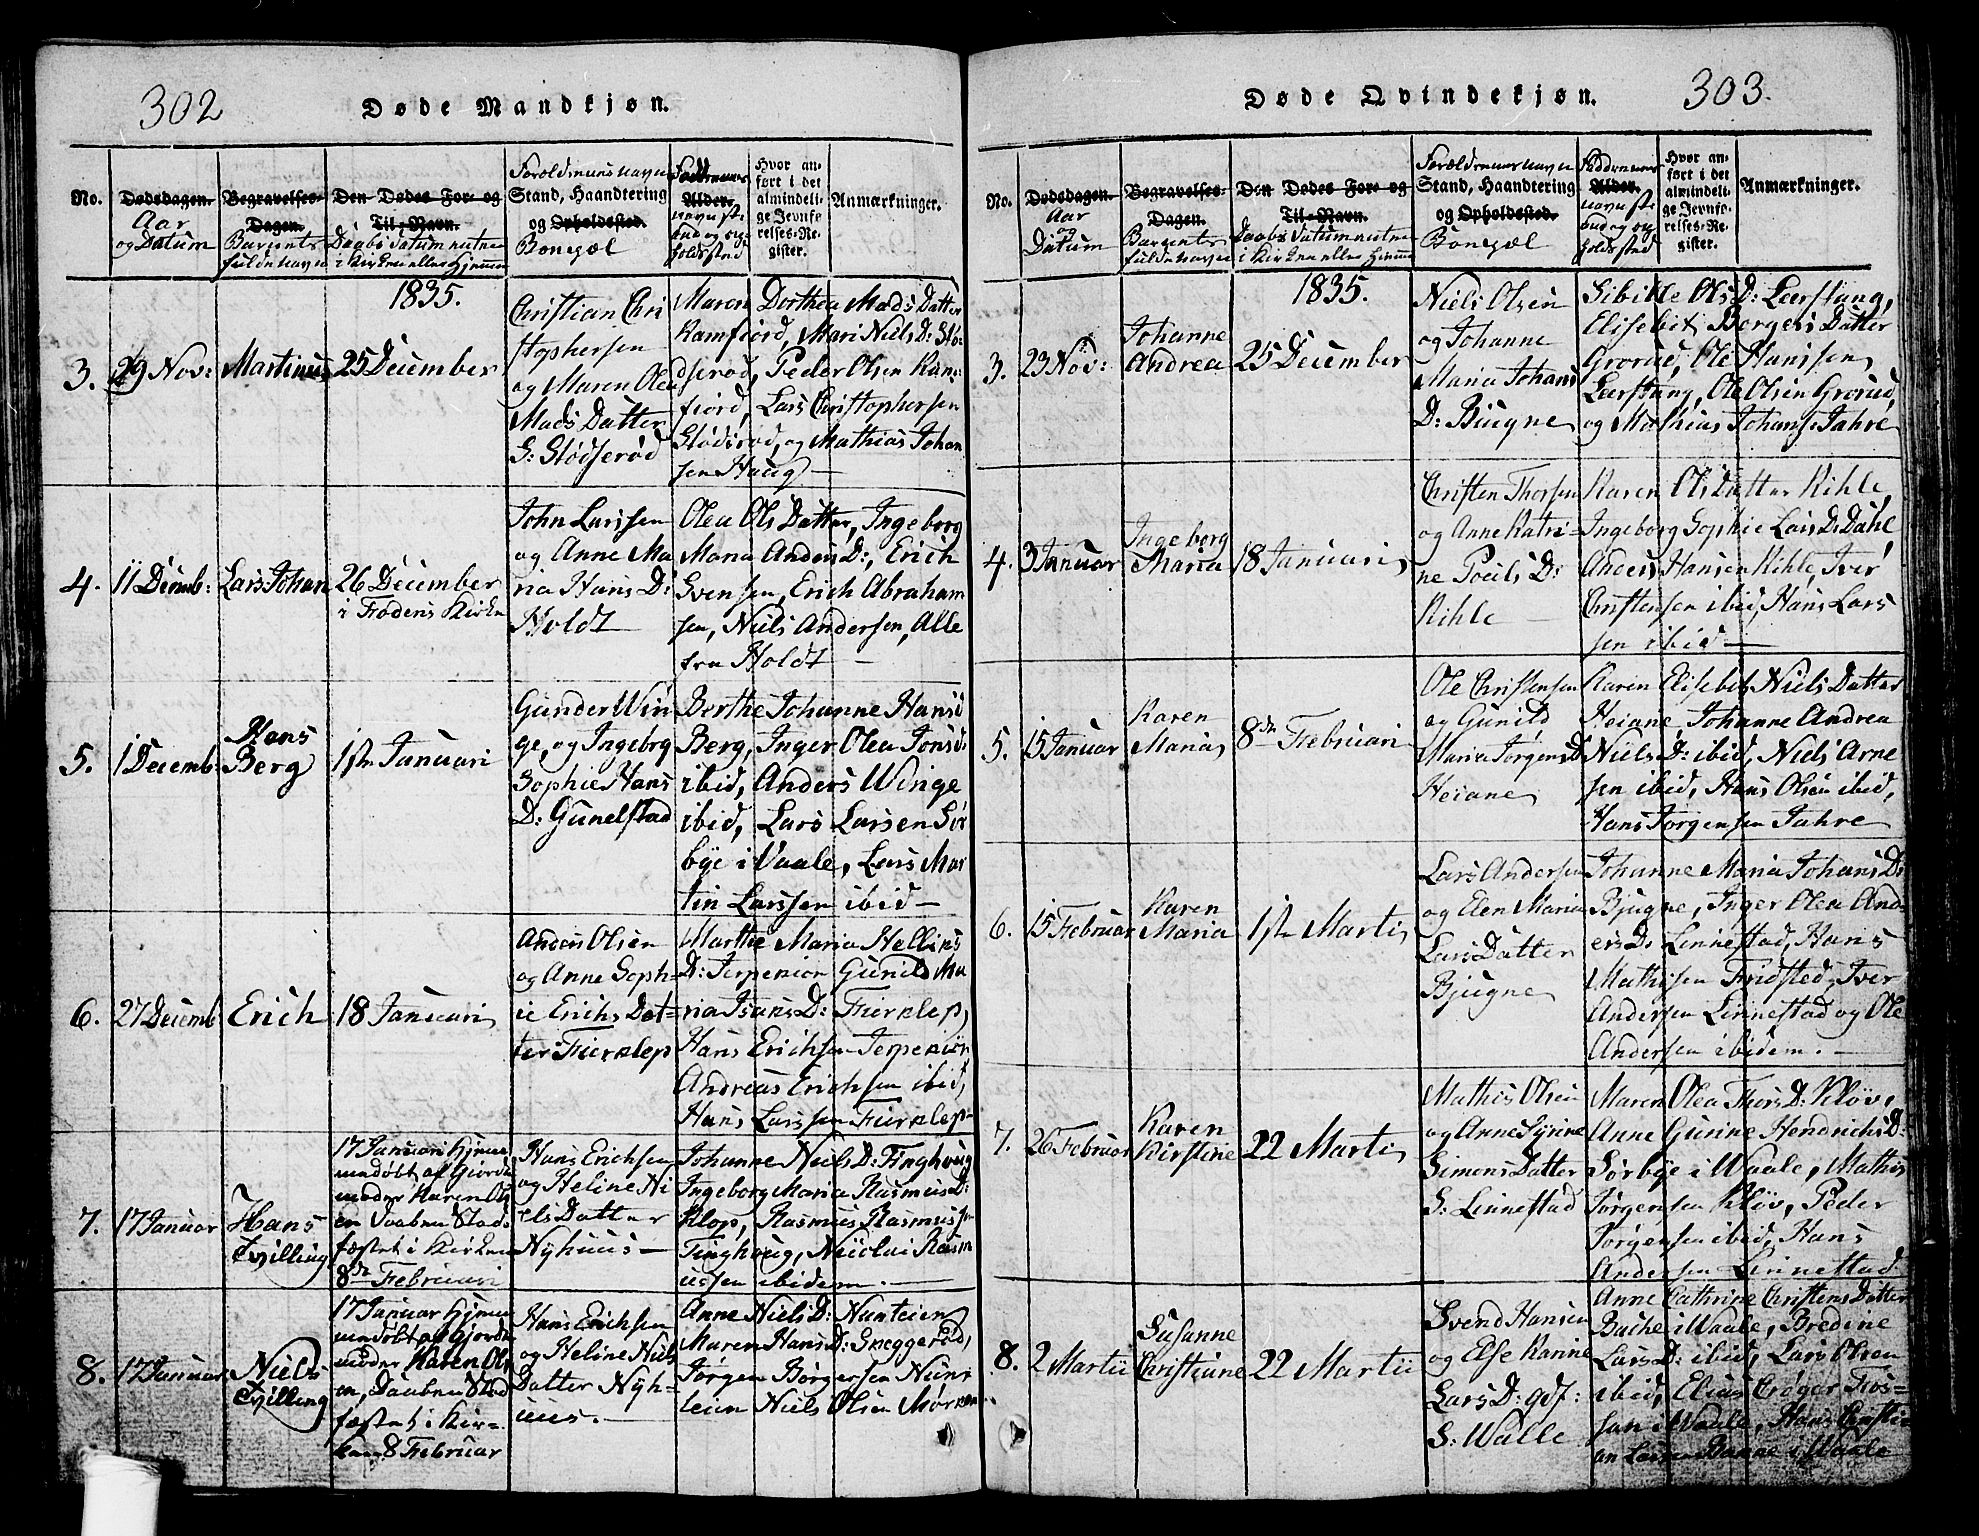 302
Døde Mandkjøn.
No.
Dødsdagen.
Aar
og Datum
Begravelses-
Dagen.
Barnets
fulde Navn
Den Dødes For- og
Til-Navn.
Daabs Datum enten
i Kirken eller Hjemme
Forældrenes Navn
Stand, Haandtering
og Opholdsted.
Bopæl
Faddernes
Alder.
Navn, Stand og Op-
holdssted
Hvor an-
ført i det
almindeli-
ge Jevnfø-
relses-Re-
gister.
Anmærkninger.
1835.
3.
29 Nov:
Martinus
25 December
Christian Chri
stophersen
og Maren Olea
Mads Datter
G: Glödserød
Maren Dorthea Mads Datter
Ramfiord, Mari Niels D: Glö-
dserød, Peder Olsen Ram-
fiord, Lars Christophersen
Glödsrød, og Mathias Johan
sen Haug
4.
11 Decmb:
Lars Johan
26 December
i Frodens Kirke
John Larssen
og Anne Ma
ria Hans D:
Holdt
Olea Ols Datter, Ingeborg
Maria Anders D:, Erich
Svensen, Erich Abraham
sen, Niels Andersen, Alle
fra Holdt
5.
1 Decemb:
Hans
Berg
1ste Januari
Gunder Win
ge, og Ingeborg
Sophie Hans
D: Gunelstad
Berthe Johanne Hans D
Berg, Inger Olea Jons D:
ibid, Anders Winge
ibid, Lars Larsen Sör
bye i Vaale, Lars Mar
tin Larssen ibid
6.
27 Decemb
Erich
18 Januari
Anders Olsen
og Anne Soph-
ie Erichs Dat-
ter Fierklep
Marthe Maria Hellins
D: Terpenior Gunild Ma
ria Isaks D: Fierklep,
Hans Erichsen Terpeniör
Andreas Erichsen ibid,
Hans Larssen Fierklep
7.
17 Januar
Hans
Tvilling
17 Januari hjemme
döbt af Giorde
moder Karen Ols
en Daaben Stad-
fæstet i Kirken
8de Februari
Hans Erichsen
og Heline Ni
els Datter
Nyhuus
Johanne Niels D: Tinghoug
Ingeborg Maria Rasmus D:
Klop, Rasmus Rasmussen
Tinghoug, Nicolai Rasm
ussen ibidem.
8.
17 Januar
Niels
Tvilling
17 Januar hjemme
döbt, af Gjorde
moder Karen Ols
en, Daaben Stad
fæstet i Kir-
ken 8 Februar
Hans Erichsen
og Heline Niels
Datter Nyh-
uus.
Anne Niels D:
Maren Hans D: Sneggerød,
Jörgen Börgersen
Niels Olsen Mörken
303.
Døde Qvindekjøn.
No.
Dødsdagen.
Aar
og
Datum
Begravelses-
Dagen.
Barnets
fulde Navn
Den Dødes For- og
Til-Navn.
Daabs Datum enten
i Kirken eller Hjemme
Forældrenes Navn
Stand, Haandtering
og Opholdsted.
Bopæl
Faddernes
Alder.
Navn, Sta
nd og Op
holdssted
Hvor an-
ført i det
almindeli-
ge Jevnfø-
relses-Re-
gister.
Anmærkninger.
1835.
3.
23 Nov:
Johanne
Andrea
25 December
Niels Olsen
og Johanne
Maria Johans
D: Biugne
Sibille Ols D: Leerstang,
Elisebet Bergers Datter
Grorud, Ole Hanssen
Leerstang, Ole Olsen Grorud,
og Mathias Johans: Jahre
4.
3 Januar
Ingeborg
Maria
18 Januari
Christen Thorsen
og Anne Katri-
ne Poels D:
Kihle
Karen Ols Datter Kihle,
Ingeborg Sophie Lars D: Dahl
Anders Hansen Kihle, Iver
Christensen ibid, Hans Lars
sen ibid
5.
15 Januar
Karen
Maria
8de Februari
Ole Christensen
og Gunild
Maria Jörgens D
Heiane
Karen Elisebet Niels Datter
Heiane Johanne Andrea
Niels D: ibid, Niels Arne
sen ibid, Hans Olsen ibid,
Hans Jörgensen Jahre
6.
15 Februar
Karen
Maria
1ste Marti
Lars Andersen
og Elen Maria
Lars Datter
Bjugne
Johanne Maria Johans D:
Bjugne, Inger Olea And-
ers D: Linnestad, Hans
Mathisen Fridsted, Iver
Andersen Linnestad og Ole
Andersen ibidem.
7.
26 Februar
Karen
Kirstine
22 Marti
Mathis Olsen
og Anne Syrine
Simons Datter
S: Linnestad
Maren Olea Thors D: Klöv,
Anne Gurine Hendrichs D:
Sörbye i Waale, Mathis
Jörgensen Klöv, Peder
Jörgensen ibid, Hans
Andersen Linnestad
8.
2 Martii
Susanne
Christiane
22 Martii
Svend Hansen
og Else Karine
Lars D: gdf:
S: Walle
Anne Cathrine Christens Datter
Bache i Waale, Bredine
Lars D: ibid, Lars Olsen
ibid, Elias Cröger Fros-
san i Waale, Hans Christi-
an Larsen i Waale